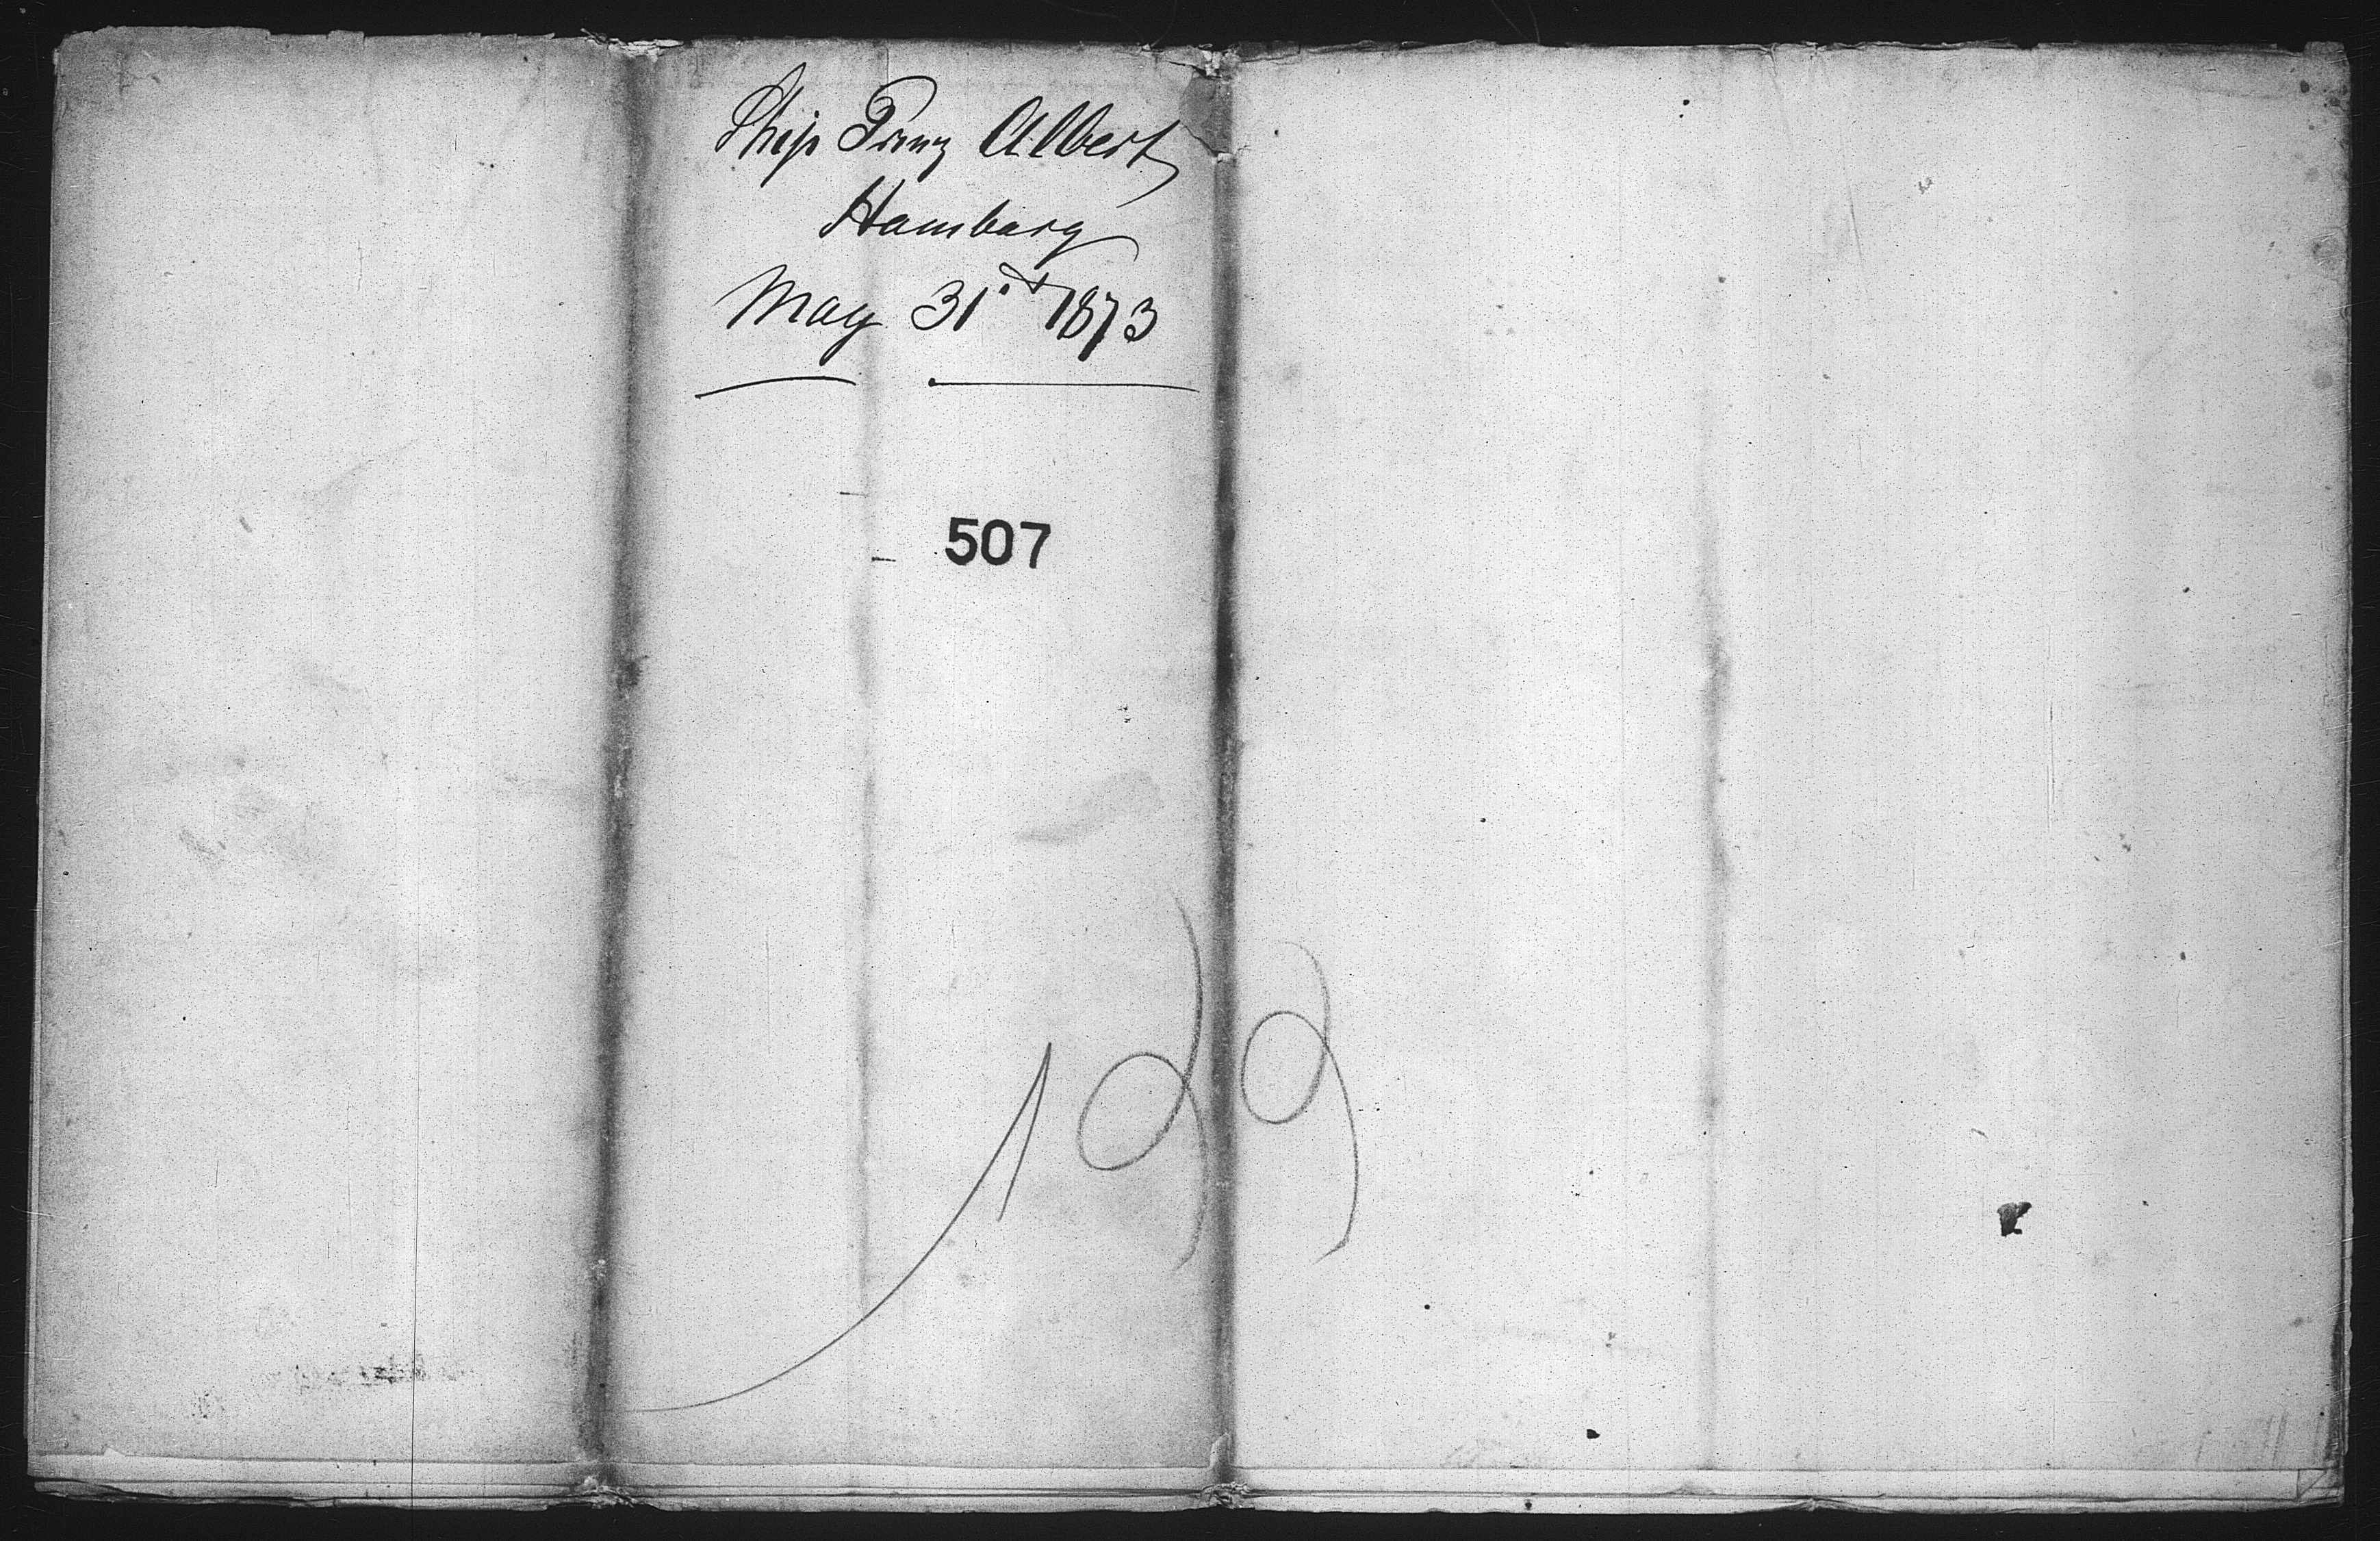 Ship Prinz Albert
Hamburg
May 31.st 1873
507
199